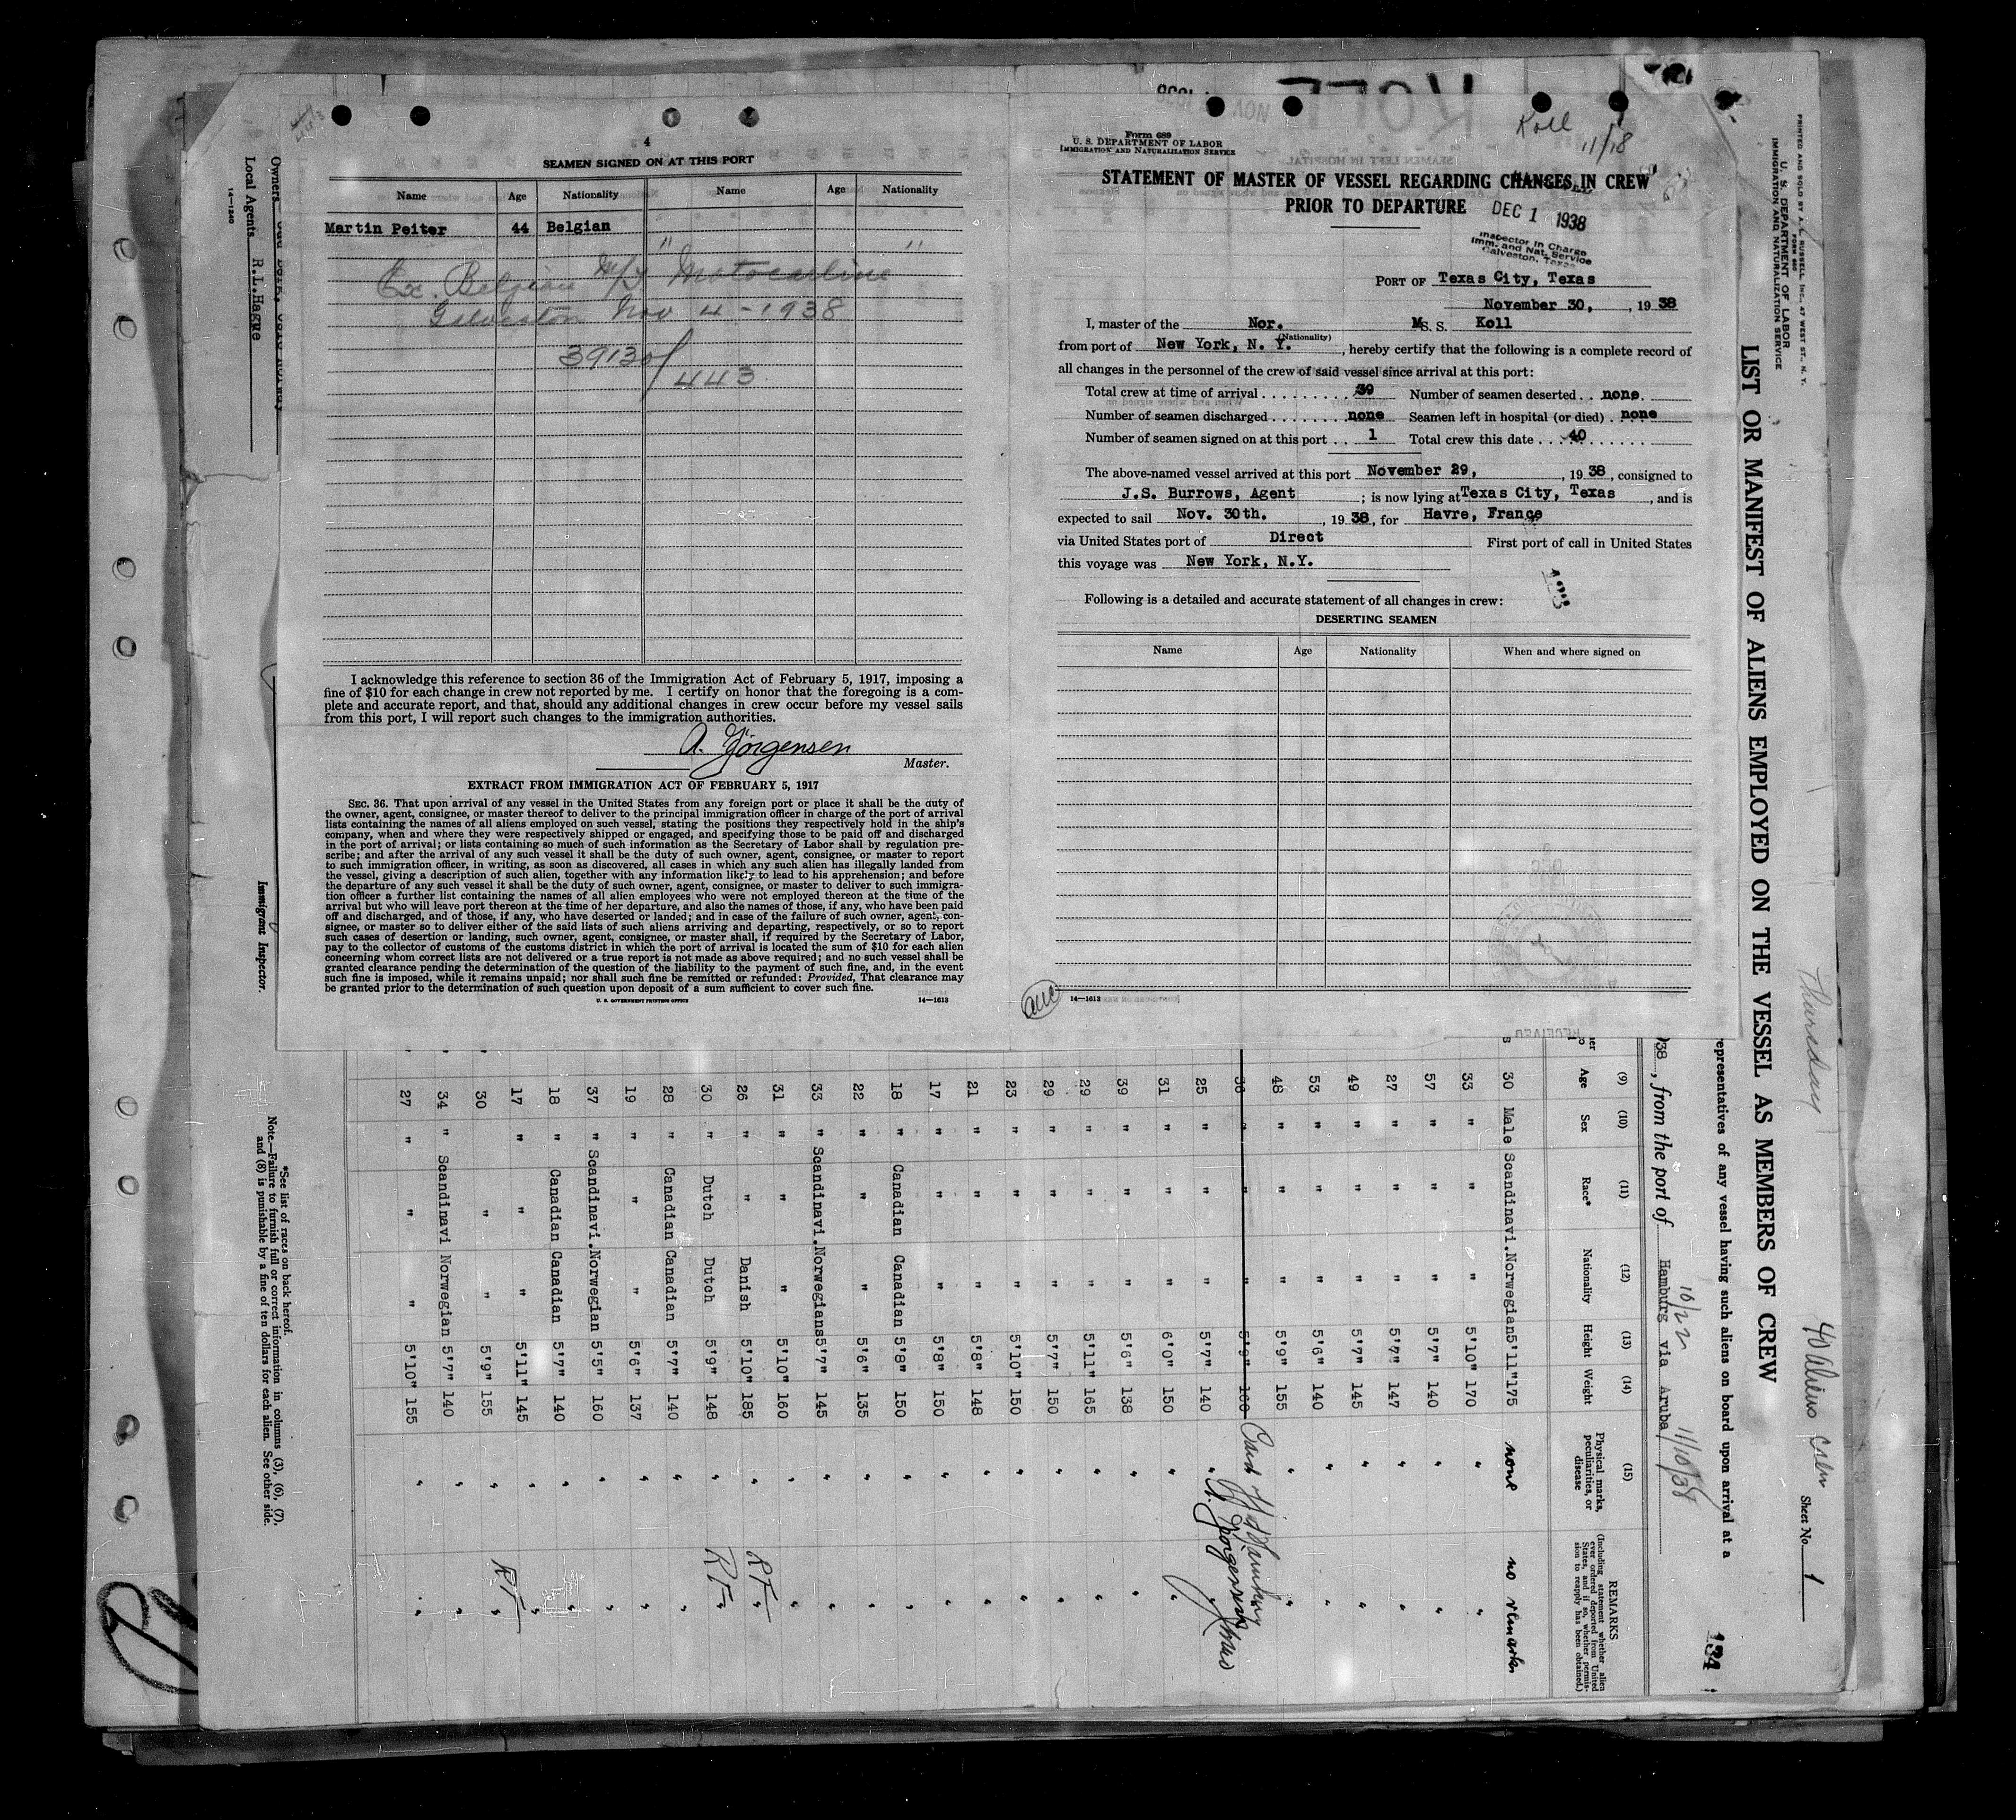 4
SEAMEN SIGNED ON AT THIS PORT
Name Age Nationality Name Age Nationality
Martin Peiter 44 Belgian
" "
Ex. Belgian M/S Motocarline
Galveston Nov 4 - 1938
39130/
443
I acknowledge this reference to section 36 of the Immigration Act of February 5, 1917, imposing a
fine of $10 for each change in crew not reported by me. I certify on honor that the foregoing is a com-
plete and accurate report, and that, should any additional changes in crew occur before my vessel sails
from this port, I will report such changes to the immigration authorities.
A. Jörgensen
Master.
EXTRACT FROM IMMIGRATION ACT OF FEBRUARY 5, 1917
SEC. 36. That upon arrival of any vessel in the United States from any foreign port or place it shall be the duty of
the owner, agent, consignee, or master thereof to deliver to the principal immigration officer in charge of the port of arrival
lists containing the names of all aliens employed on such vessel, stating the positions they respectively hold in the ship's
company, when and where they were respectively shipped or engaged, and specifying those to be paid off and discharged
in the port of arrival; or lists containing so much of such information as the Secretary of Labor shall by regulation pre-
scribe; and after the arrival of any such vessel it shall be the duty of such owner, agent, consignee, or master to report
to such immigration officer, in writing, as soon as discovered, all cases in which any such alien has illegally landed from
the vessel, giving a description of such alien, together with any information likely to lead to his apprehension; and before
the departure of any such vessel it shall be the duty of such owner, agent, consignee, or master to deliver to such immigra-
tion officer a further list containing the names of all alien employees who were not employed thereon at the time of the
arrival but who will leave port thereon at the time of her departure, and also the names of those, if any, who have been paid
off and discharged, and of those, if any, who have deserted or landed; and in case of the failure of such owner, agent, con-
signee, or master so to deliver either of the said lists of such aliens arriving and departing, respectively, or so to report
such cases of desertion or landing, such owner, agent, consignee, or master shall, if required by the Secretary of Labor,
pay to the collector of customs of the customs district in which the port of arrival is located the sum of $10 for each alien
concerning whom correct lists are not delivered or a true report is not made as above required; and no such vessel shall be
granted clearance pending the determination of the question of the liability to the payment of such fine, and, in the event
such fine is imposed, while it remains unpaid; nor shall such fine be remitted or refunded: Provided, That clearance may
be granted prior to the determination of such question upon deposit of a sum sufficient to cover such fine.
U. S. GOVERNMENT PRINTING OFFICE 14—1613
Koll
11/18
Form 689
U. S. DEPARTMENT OF LABOR
IMMIGRATION AND NATURALIZATION SERVICE
STATEMENT OF MASTER OF VESSEL REGARDING CHANGES IN CREW
PRIOR TO DEPARTURE
DEC 1 1938
Inspector in Charge
Imm. and Nat. Service
Galveston, Texas
PORT OF Texas City, Texas
November 30, , 1938
I, master of the Nor. M S. S. Koll
(Nationality)
from port of New York, N. Y. , hereby certify that the following is a complete record of
all changes in the personnel of the crew of said vessel since arrival at this port:
Total crew at time of arrival 39 Number of seamen deserted none
Number of seamen discharged none Seamen left in hospital (or died) none
Number of seamen signed on at this port 1 Total crew this date 40
The above-named vessel arrived at this port November 29, , 1938, consigned to
J.S. Burrows, Agent ; is now lying at Texas City, Texas , and is
expected to sail Nov. 30th. , 1938, for Havre, France
via United States port of Direct First port of call in United States
this voyage was New York, N.Y.
Following is a detailed and accurate statement of all changes in crew:
DESERTING SEAMEN
Name Age Nationality When and where signed on
14—1613
PRINTED AND SOLD BY A. L. RUSSELL, INC., 47 WEST ST., N. Y.
FORM 680
U. S. DEPARTMENT OF LABOR
IMMIGRATION AND NATURALIZATION SERVICE
Thursday
40 aliens crew
Sheet No. 1
LIST OR MANIFEST OF ALIENS EMPLOYED ON THE VESSEL AS MEMBERS OF CREW
134
epresentatives of any vessel having such aliens on board upon arrival at a
10/22 11/10/38
38, from the port of Hamburg via Aruba
(9) (10) (11) (12) (13) (14) (15)
Age Sex Race* Nationality Height Weight Physical marks, peculiarities, or disease REMARKS
(Including statement whether alien ever ordered deported from United States, and if so, whether permission to reapply has been obtained.)
30 Male Scandinavi. Norwegian 5'11" 175 none no remarks
33 " " " 5'10" 170 " "
57 " " " 5'7" 140 " "
27 " " " 5'7" 147 " "
49 " " " 5'7" 145 " "
53 " " " 5'6" 140 " "
48 " " " 5'9" 155 " "
36 " " " 5'9" 160
A. Jörgensen
25 " " " 5'7" 140 " "
31 " " " 6'0" 150 " "
39 " " " 5'6" 138 " "
29 " " " 5'11" 165 " "
29 " " " 5'7" 150 " "
23 " " " 5'10" 150 " "
21 " " " 5'8" 148 " "
17 " " " 5'8" 150 " "
18 " Canadian Canadian 5'8" 150 " "
22 " " " 5'6" 135 " "
33 " Scandinavi. Norwegians 5'7" 145 " "
31 " " " 5'10" 160 " "
26 " " Danish 5'10" 185 " " RF
30 " Dutch Dutch 5'9" 148 " " RF
28 " Canadian Canadian 5'7" 140 " "
19 " " " 5'6" 137 " "
37 " Scandinavi. Norwegian 5'5" 160 " "
18 " Canadian Canadian 5'7" 140 " "
17 " " " 5'11" 145 " " RF
30 " " " 5'9" 155 " "
34 " Scandinavi Norwegian 5'7" 140 " "
27 " " " 5'10" 155 " "
*See list of races on back hereof.
Note.—Failure to furnish full or correct information in columns (3), (6), (7),
and (8) is punishable by a fine of ten dollars for each alien. See other side.
Owners
Local Agents R.L.Hague
Immigrant Inspector.
14—1240